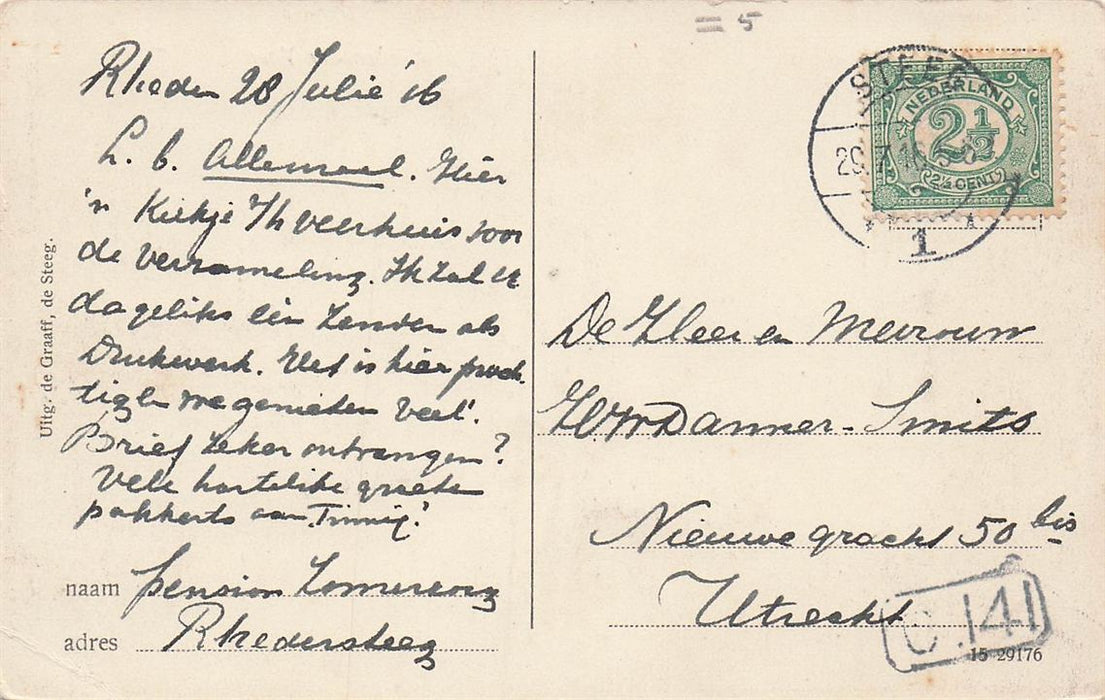 = 5
Rheden 28 Julie '16
L. b. Allemaal. Hier
'n Kiekje Th veerhuis voor
de verzameling. Ik zal er
dageliks één zenden als
Drukwerk. Het is hier prach-
tig en we genieten veel!
Brief zeker ontvangen?
Vele hartelike groeten
pakkerts aan Timmie!
naam pension Zomerzorg
adres Rhedersteeg
Uitg. de Graaff, de Steeg.
STEEG
29.7.16
1
NEDERLAND
2½
(2½ CENT)
De Heer en Mevrouw
Danner-Smits
Nieuwe gracht 50 bis
Utrecht
C.141
15 29176